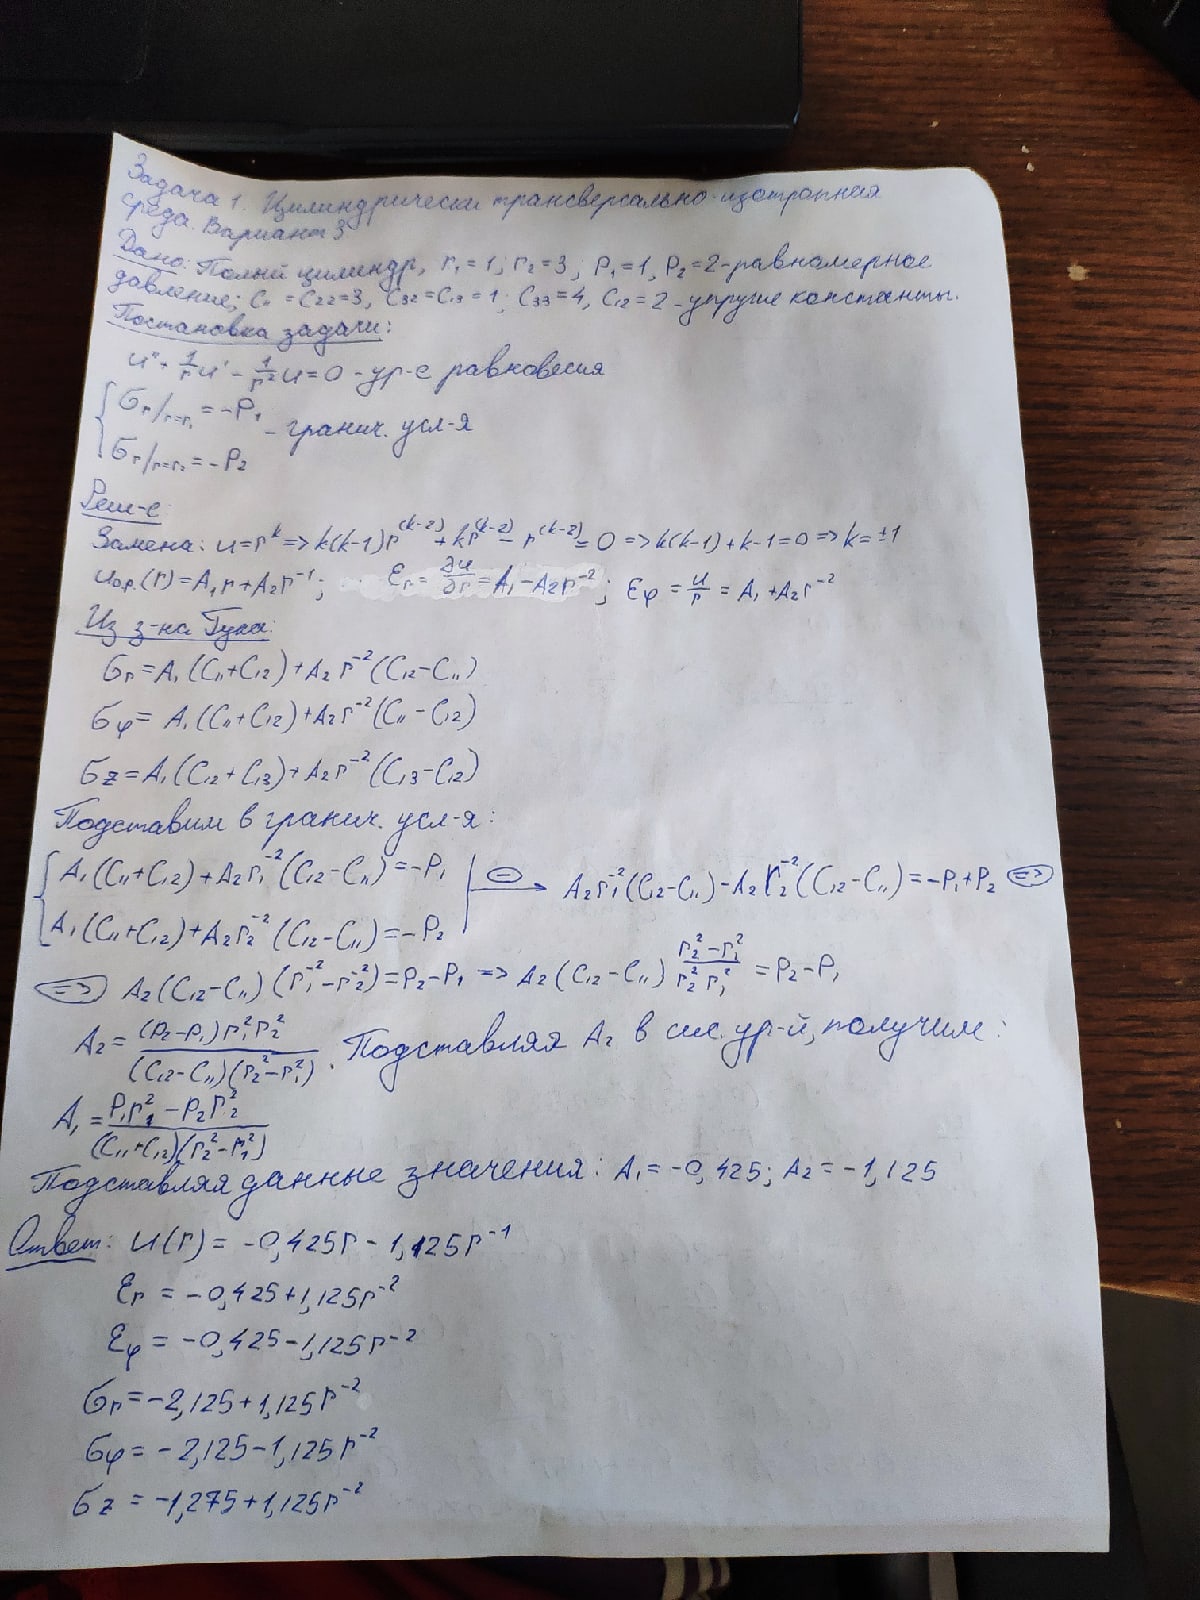 Задача 1. Цилиндрически трансверсально-изотропная
среда. Вариант 3
Дано: Полый цилиндр, r₁=1; r₂=3; P₁=1, P₂=2-равномерное
давление; C₁₁=C₂₂=3, C₃₂=C₁₃=1; C₃₃=4, C₁₂=2-упругие константы.
Постановка задачи:
u''+1/r u' - 1/r² u=0 -ур-е равновесия
{ σr/r=r₁ = -P₁
- гранич. усл-я
σr/r=r₂ = -P₂
Реш-е:
Замена: u=r^k => k(k-1)r^(k-2) + kr^(k-2) - r^(k-2) = 0 => k(k-1)+k-1=0 => k=±1
uо.р.(r)=A₁r+A₂r⁻¹; εr = ∂u/∂r = A₁-A₂r⁻²; εφ = u/r = A₁+A₂r⁻²
Из з-на Гука:
σr=A₁(C₁₁+C₁₂)+A₂r⁻²(C₁₂-C₁₁)
σφ= A₁(C₁₁+C₁₂)+A₂r⁻²(C₁₁-C₁₂)
σz=A₁(C₁₂+C₁₃)+A₂r⁻²(C₁₃-C₁₂)
Подставим в гранич. усл-я:
{ A₁(C₁₁+C₁₂)+A₂r₁⁻²(C₁₂-C₁₁)=-P₁ | (-) → A₂r₁⁻²(C₁₂-C₁₁)-A₂r₂⁻²(C₁₂-C₁₁)=-P₁+P₂ (=>)
A₁(C₁₁+C₁₂)+A₂r₂⁻²(C₁₂-C₁₁)=-P₂
(=>) A₂(C₁₂-C₁₁)(r₁⁻²-r₂⁻²)=P₂-P₁ => A₂(C₁₂-C₁₁) (r₂²-r₁²)/(r₂²r₁²) = P₂-P₁
A₂= (P₂-P₁)r₁²r₂² / (C₁₂-C₁₁)(r₂²-r₁²) . Подставляя A₂ в сис. ур-й, получим:
A₁ = P₁r₁²-P₂r₂² / (C₁₁+C₁₂)(r₂²-r₁²)
Подставляя данные значения: A₁=-0,425; A₂=-1,125
Ответ: u(r)= -0,425r - 1,125r⁻¹
εr = -0,425+1,125r⁻²
εφ = -0,425-1,125r⁻²
σr=-2,125+1,125r⁻²
σφ= -2,125-1,125r⁻²
σz = -1,275+1,125r⁻²